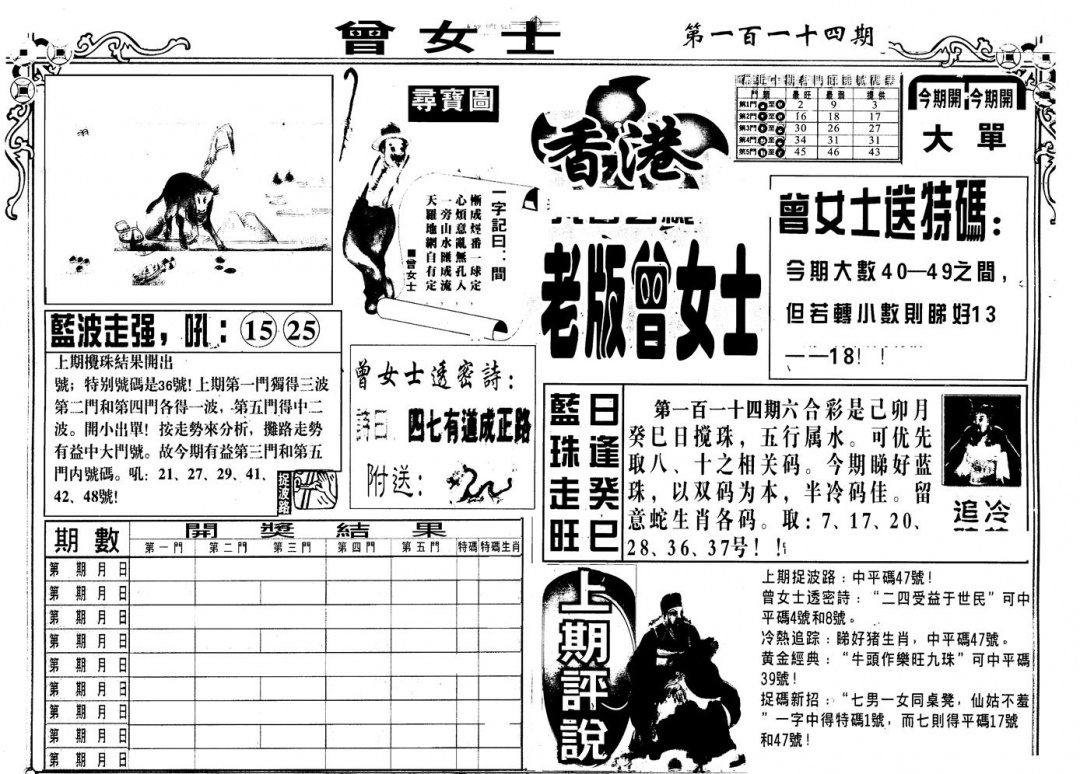 曾女士
第一百一十四期
尋寶圖
一字記曰：間
慚成煙番一球定
心煩意亂無孔入
一旁山水匯成流
天羅地網自有定
■曾女士
香港
老版曾女士
門類 最旺 最弱 提供
第1門 至 2 9 3
第2門 至 16 18 17
第3門 至 30 26 27
第4門 至 34 31 31
第5門 至 45 46 43
今期開 今期開
大 單
曾女士送特碼：
今期大數40—49之間，
但若轉小數則睇好13
——18！！
藍波走强，吼：15 25
上期攪珠結果開出
號；特别號碼是36號！上期第一門獨得三波
第二門和第四門各得一波，第五門得中二
波。開小出單！按走勢來分析，攤路走勢
有益中大門號。故今期有益第三門和第五
門内號碼。吼：21、27、29、41、
42、48號！
捉波路
曾女士透密詩：
詩曰：四七有道成正路
附送：
藍珠走旺
日逢癸巳
第一百一十四期六合彩是己卯月
癸巳日搅珠，五行属水。可优先
取八、十之相关码。今期睇好蓝
珠，以双码为本，半冷码佳。留
意蛇生肖各码。取：7、17、20、
28、36、37号！！
追 冷
期數 開獎結果
第一門 第二門 第三門 第四門 第五門 特碼 特碼生肖
第 期 月 日
第 期 月 日
第 期 月 日
第 期 月 日
第 期 月 日
第 期 月 日
第 期 月 日
第 期 月 日
第 期 月 日
上期評說
上期捉波路：中平碼47號！
曾女士透密詩：“二四受益于世民”可中
平碼4號和8號。
冷熱追踪：睇好猪生肖，中平碼47號。
黄金經典：“牛頭作樂旺九珠”可中平碼
39號！
捉碼新招：“七男一女同桌凳，仙姑不羞
”一字中得特碼1號，而七則得平碼17號
和47號！